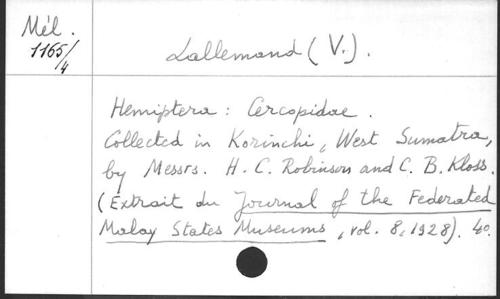 Mél.
1165/4
Lallemand (V.).
Hemiptera : Cercopidae.
Collected in Korinchi, West Sumatra,
by Messrs. H. C. Robinson and C. B. Kloss.
(Extrait du Journal of the Federated
Malay States Museums, vol. 8, 1928). 4o.